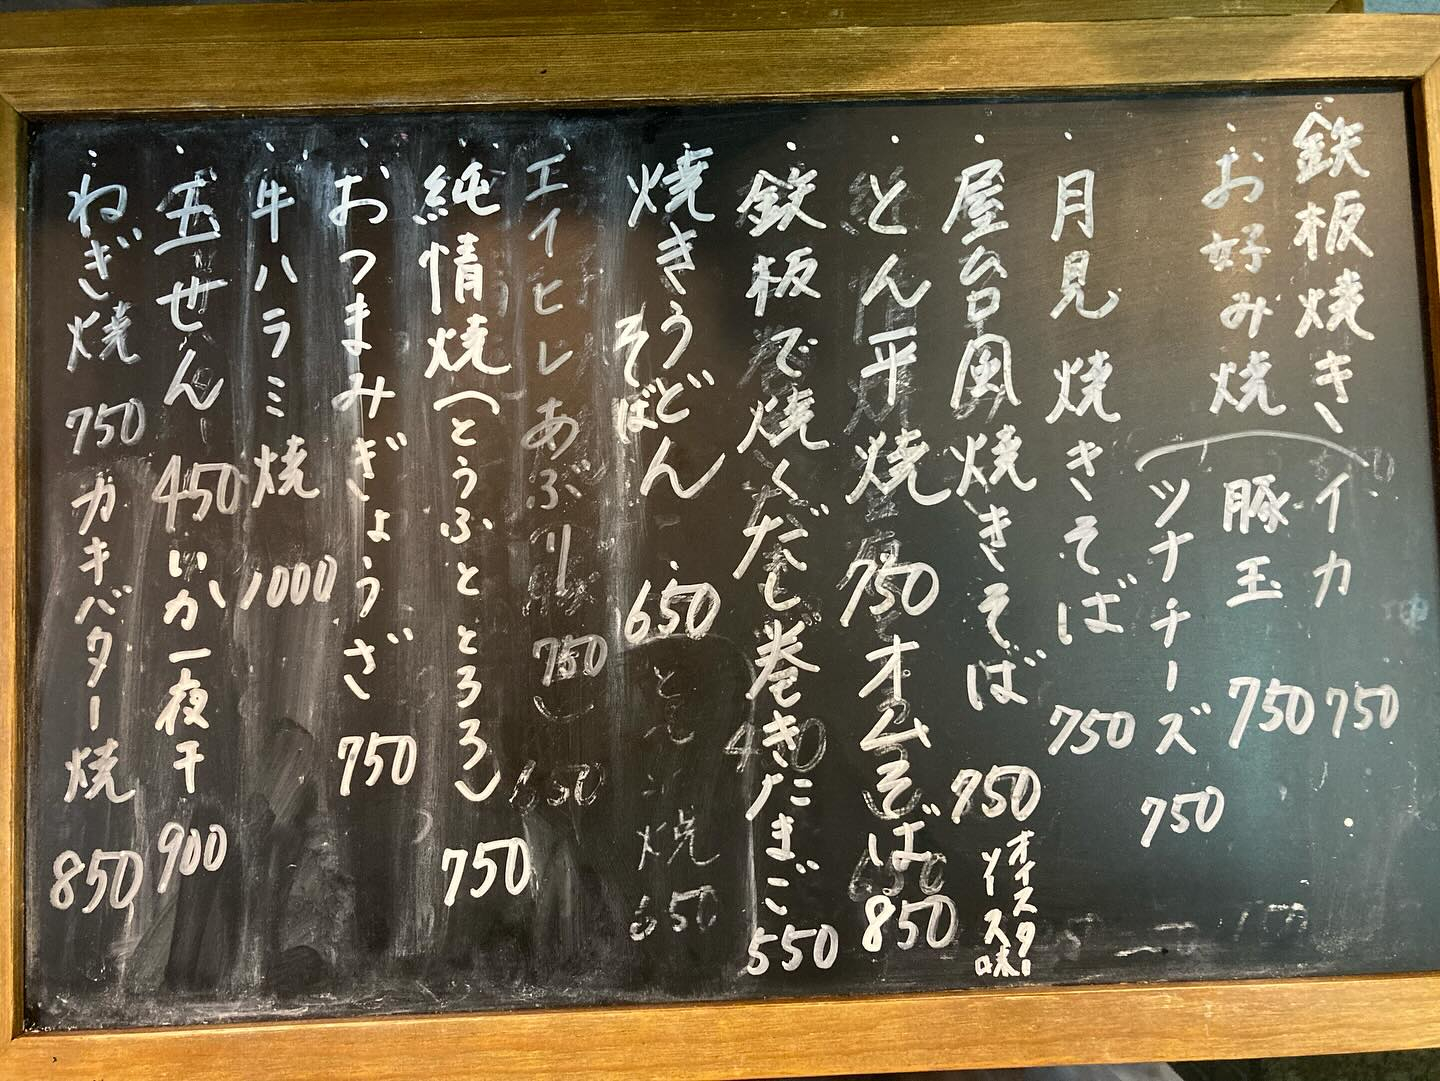 鉄板焼き イカ 750
お好み焼 豚玉 750
ツナチーズ 750
月見焼きそば 750
屋台風焼きそば 750 オイスターソース味
とん平焼 750 オムそば 850
鉄板で焼くだし巻きたまご 550
焼きうどん 650
そば
エイヒレあぶり 750
純情焼(とうふととろろ) 750
おつまみぎょうざ 750
牛ハラミ焼 1000
玉せん 450 いか一夜干 900
ねぎ焼 750 カキバター焼 850